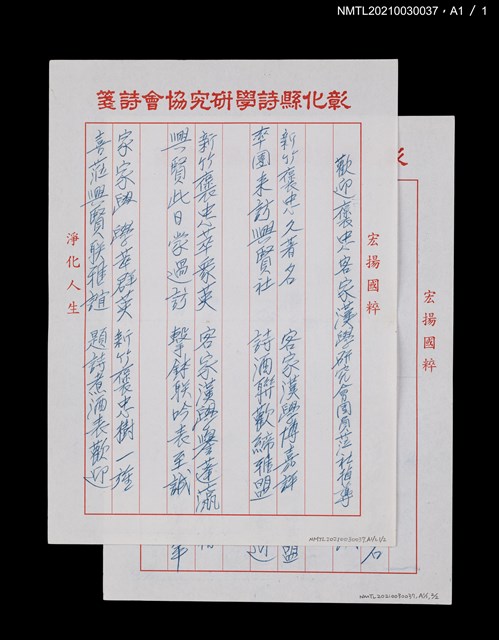 NMTL20210030037，A1 / 1
彰化縣詩學研究協會詩箋
宏揚國粹
歡迎褒忠客家漢學研究會團員蒞社指導
新竹褒忠久著名 客家漢學博嘉評
率團來訪興賢社 詩酒聯歡締雅盟
新竹褒忠萃眾英 客家漢學譽蓬瀛
興賢此日蒙過訪 擊鉢聯吟表至誠
家家興學萃群英 新竹褒忠樹一
喜蒞興賢聯雅誼 題詩煮酒表歡迎
淨化人生
NMTL20210030037,A1/1,1/2
宏揚國粹
盟
迎
NMTL20210030037,